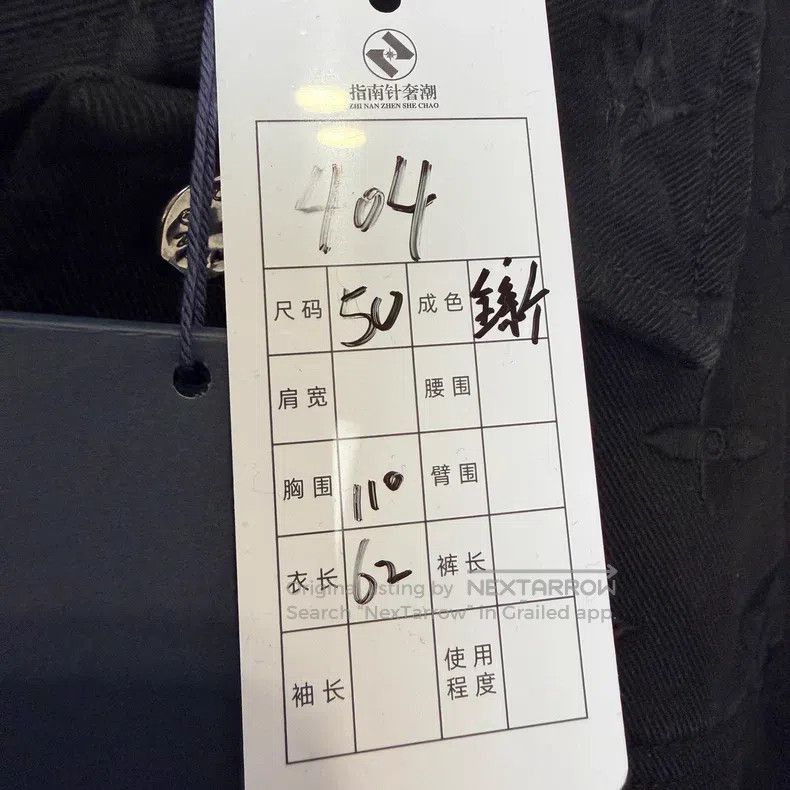 指南针奢潮
ZHI NAN ZHEN SHE CHAO
404
尺码 50 成色 全新
肩宽 腰围
胸围 110 臂围
衣长 62 裤长
Original listing by NEXTARROW
Search "NexTarrow" in Grailed app
袖长 使用
程度